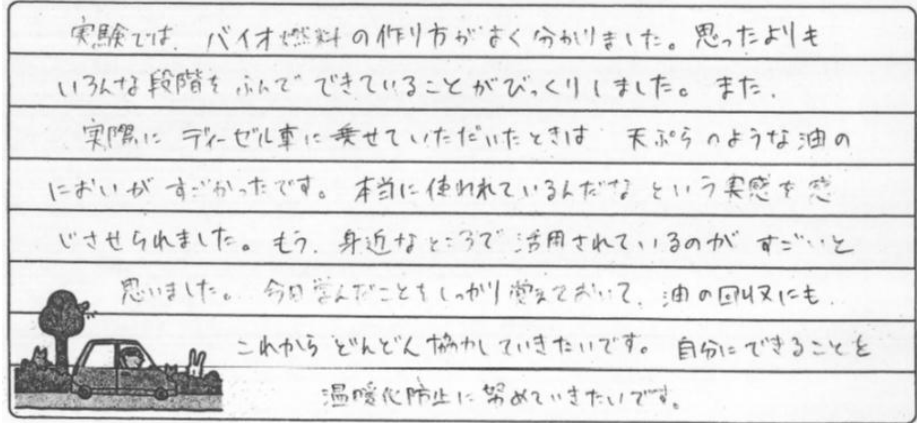 実験では、バイオ燃料の作り方がよく分かりました。思ったよりも
いろんな段階をふんでできていることがびっくりしました。また、
実際にディーゼル車に乗せていただいたときは 天ぷらのような油の
においがすごかったです。本当に使われているんだなという実感を感
じさせられました。もう、身近なところで活用されているのがすごいと
思いました。今日学んだことをしっかり覚えておいて、油の回収にも、
これからどんどん協力していきたいです。自分にできることを
温暖化防止に努めていきたいです。